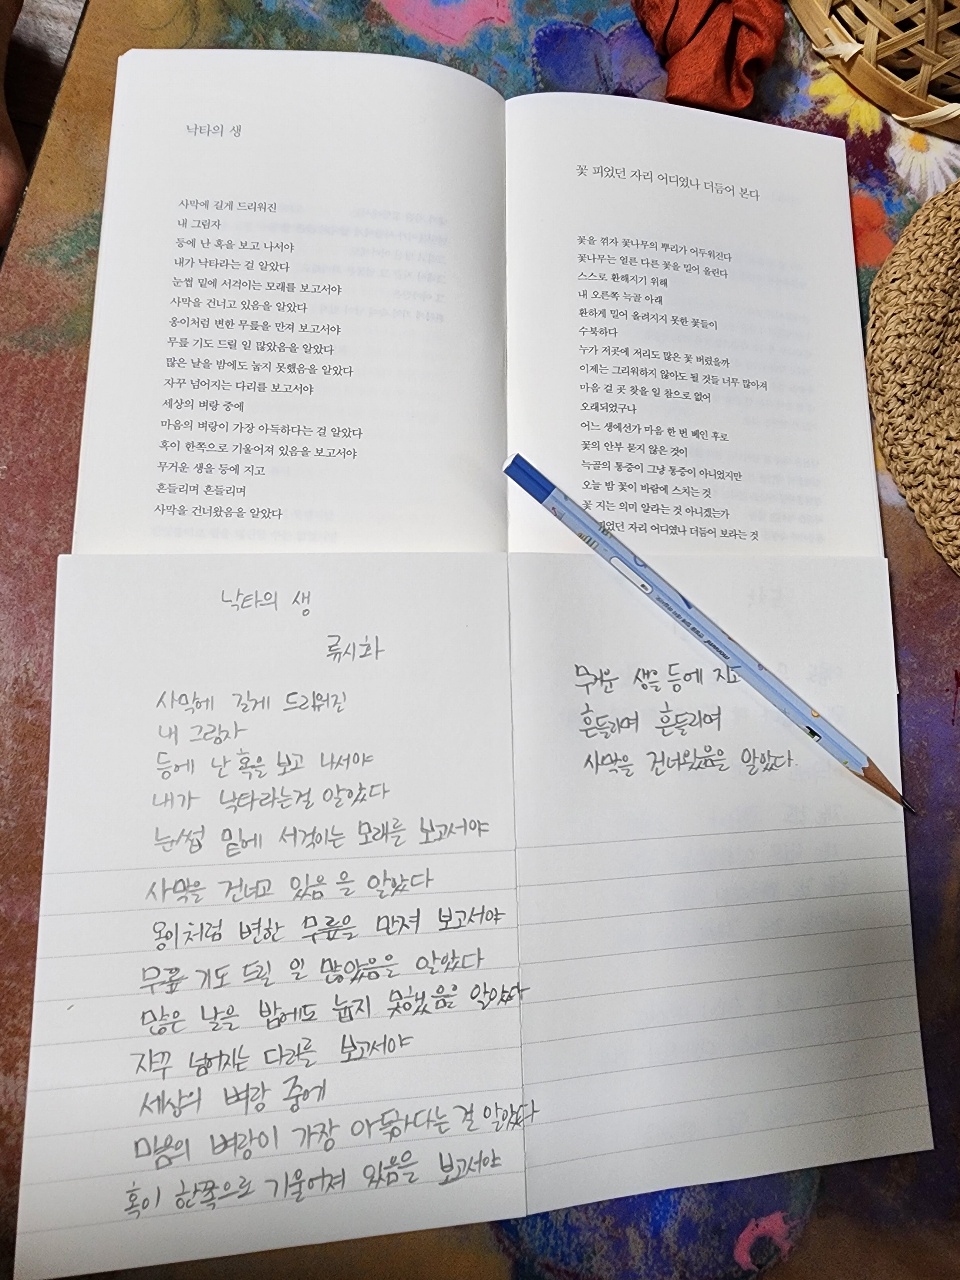 낙타의 생
사막에 길게 드리워진
내 그림자
등에 난 혹을 보고 나서야
내가 낙타라는 걸 알았다
눈썹 밑에 서걱이는 모래를 보고서야
사막을 건너고 있음을 알았다
옹이처럼 변한 무릎을 만져 보고서야
무릎 기도 드릴 일 많았음을 알았다
많은 날을 밤에도 눕지 못했음을 알았다
자꾸 넘어지는 다리를 보고서야
세상의 벼랑 중에
마음의 벼랑이 가장 아득하다는 걸 알았다
혹이 한쪽으로 기울어져 있음을 보고서야
무거운 생을 등에 지고
흔들리며 흔들리며
사막을 건너왔음을 알았다
꽃 피었던 자리 어디였나 더듬어 본다
꽃을 꺾자 꽃나무의 뿌리가 어두워진다
꽃나무는 얼른 다른 꽃을 밀어 올린다
스스로 환해지기 위해
내 오른쪽 늑골 아래
환하게 밀어 올려지지 못한 꽃들이
수북하다
누가 저곳에 저리도 많은 꽃 버렸을까
이제는 그리워하지 않아도 될 것들 너무 많아져
마음 걸 곳 찾을 일 참으로 없어
오래되었구나
어느 생에선가 마음 한 번 베인 후로
꽃의 안부 묻지 않은 것이
늑골의 통증이 그냥 통증이 아니었지만
오늘 밤 꽃이 바람에 스치는 것
꽃 지는 의미 알라는 것 아니겠는가
피었던 자리 어디였나 더듬어 보라는 것
낙타의 생
류시화
사막에 길게 드리워진
내 그림자
등에 난 혹을 보고 나서야
내가 낙타라는걸 알았다
눈썹 밑에 서걱이는 모래를 보고서야
사막을 건너고 있음을 알았다
옹이처럼 변한 무릎을 만져 보고서야
무릎 기도 드릴 일 많았음을 알았다
많은 날을 밤에도 눕지 못했음을 알았다
자꾸 넘어지는 다리를 보고서야
세상의 벼랑 중에
마음의 벼랑이 가장 아득하다는 걸 알았다
혹이 한쪽으로 기울어져 있음을 보고서야
무거운 생을 등에 지고
흔들리며 흔들리며
사막을 건너왔음을 알았다.